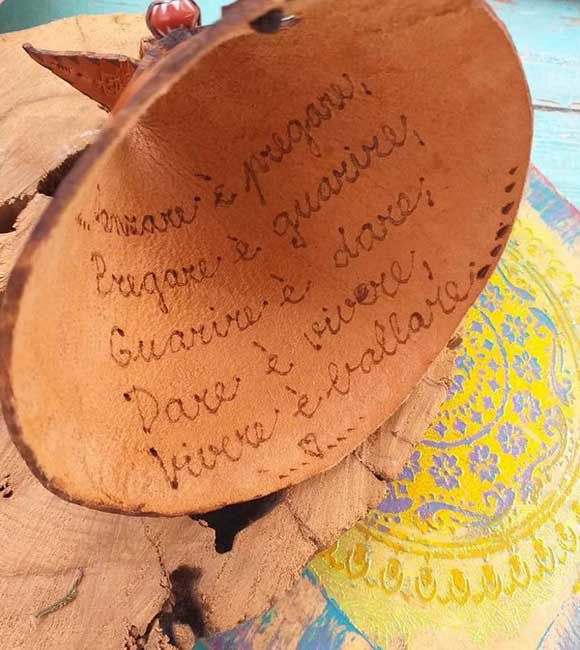 ...Danzare è pregare,
Pregare è guarire,
Guarire è dare,
Dare è vivere,
Vivere è ballare